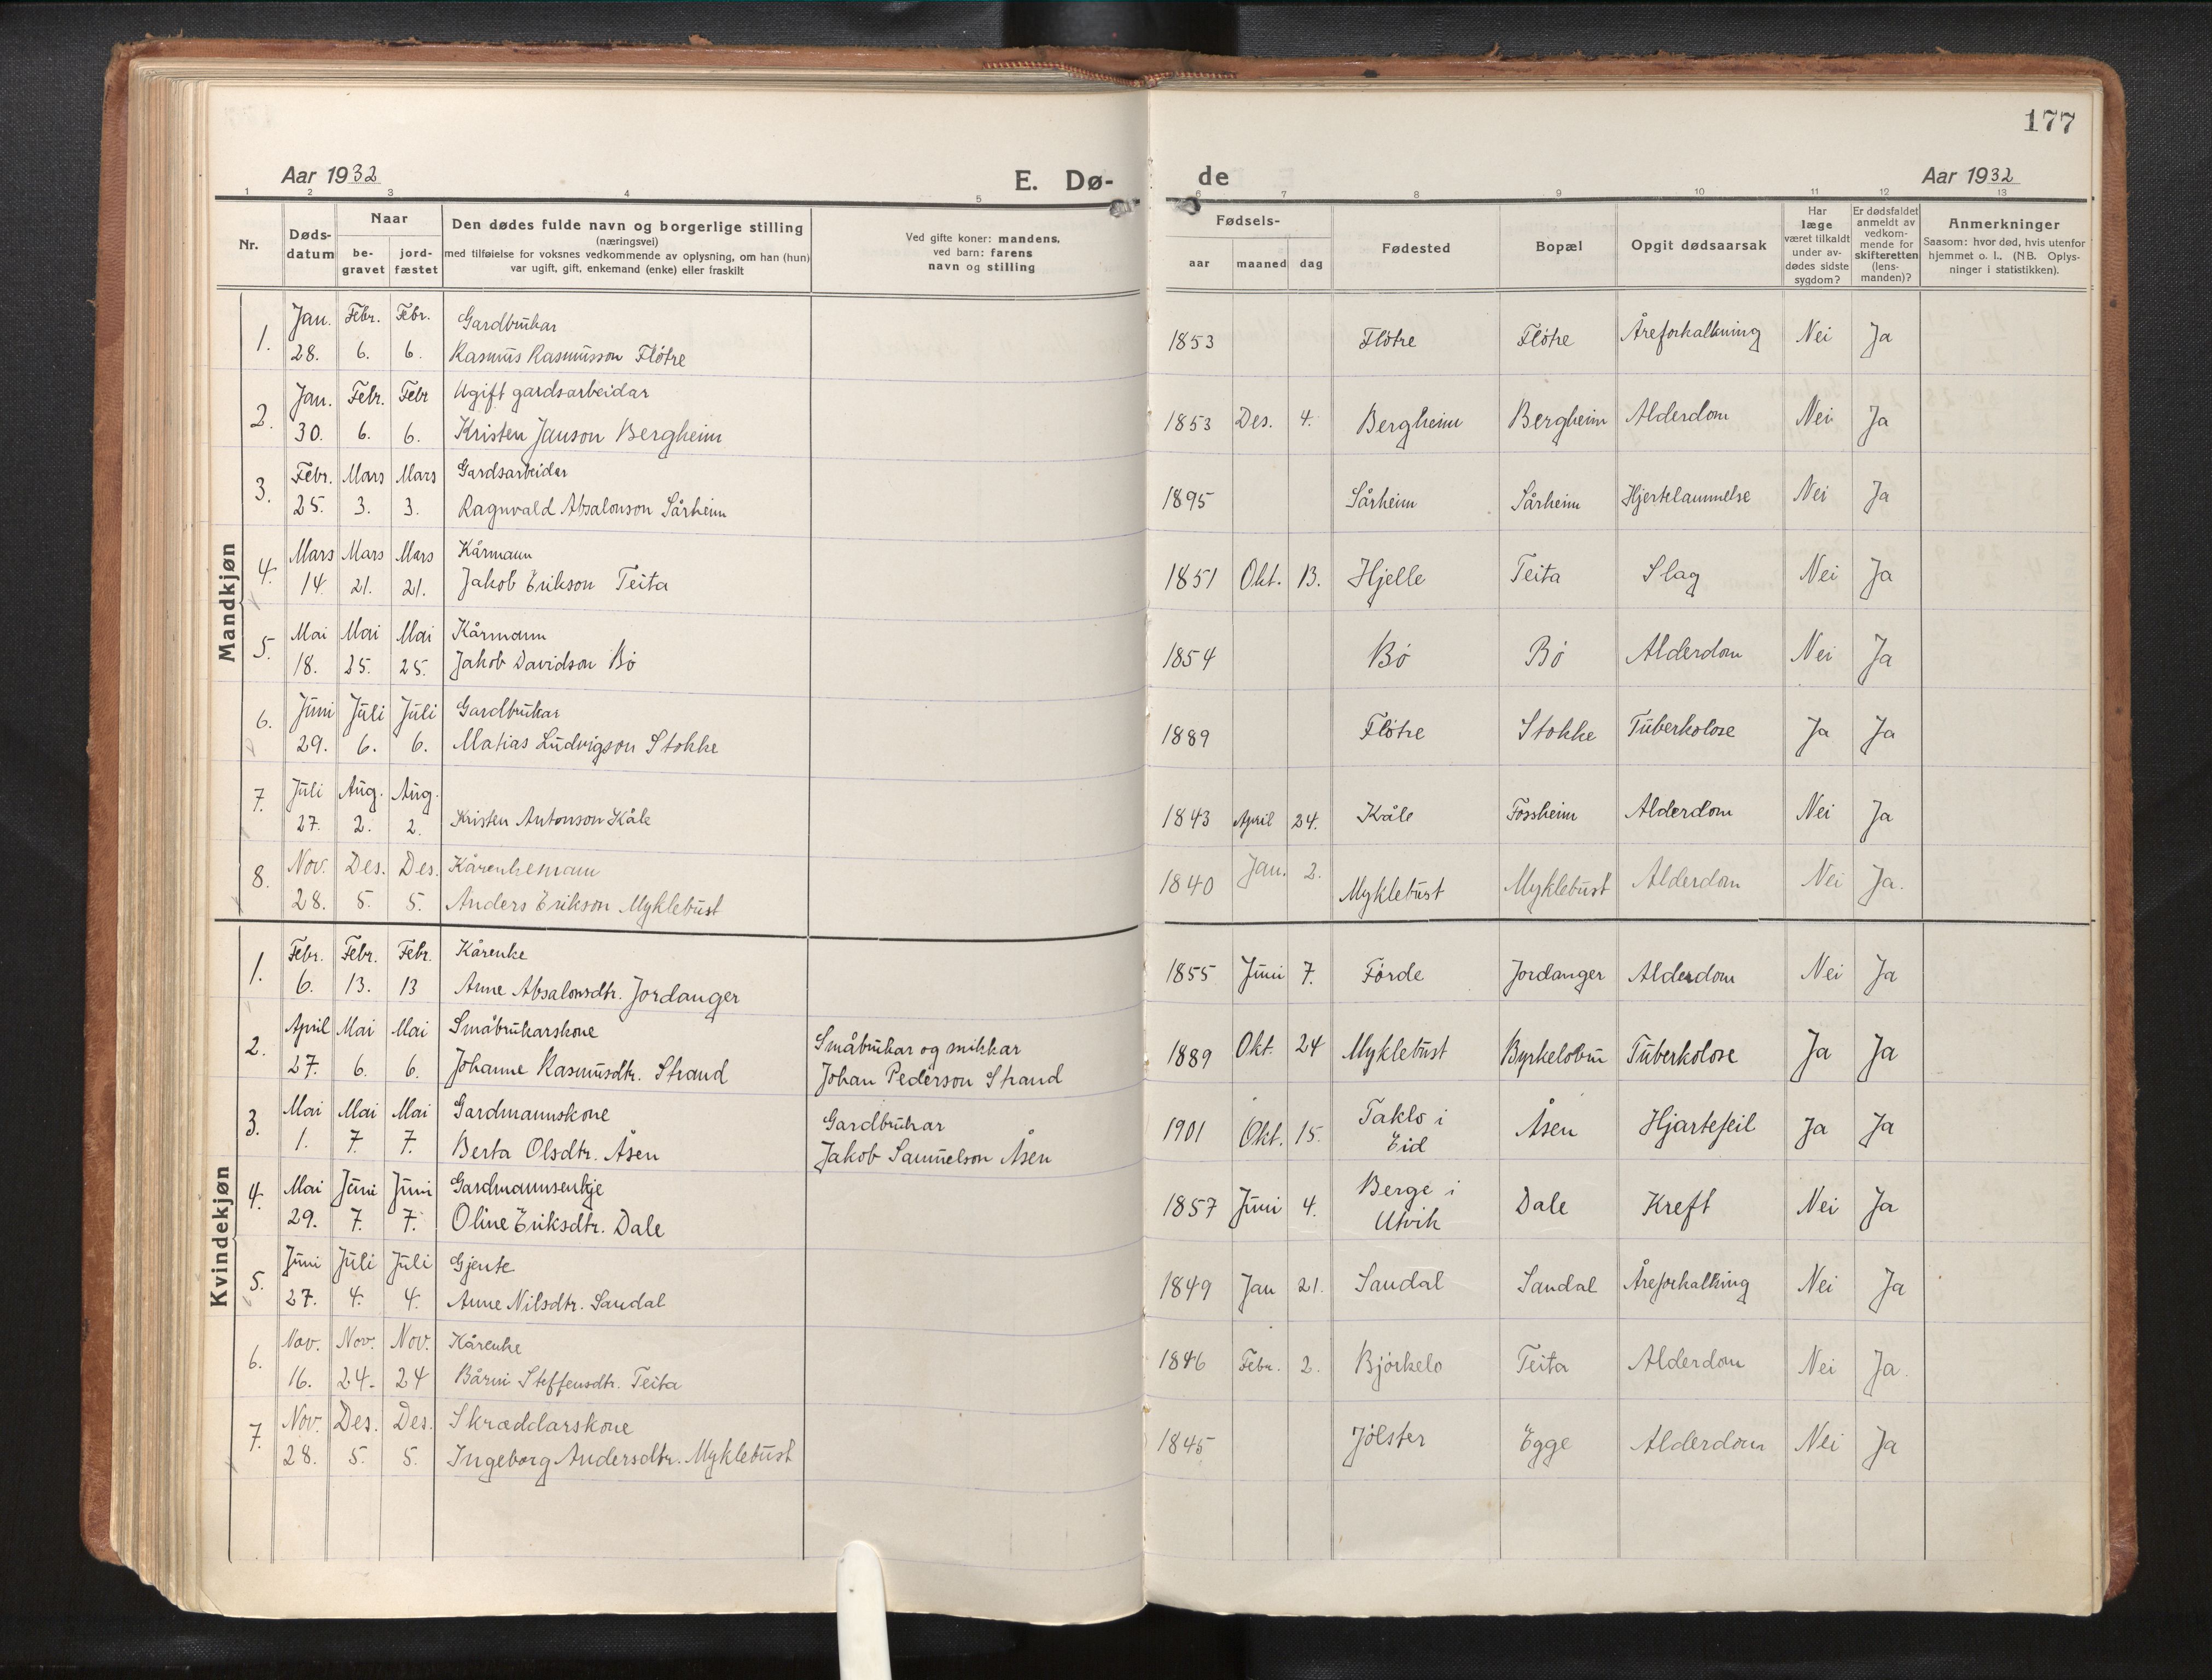 177
Aar 1932 E. Dø- de Aar 1932
1 2 3 4 5 6 7 8 9 10 11 12 13
Nr.
Døds-
datum
Naar
be-
gravet
jord-
fæstet
Den dødes fulde navn og borgerlige stilling
(næringsvei)
med tilføielse for voksnes vedkommende av oplysning, om han (hun)
var ugift, gift, enkemand (enke) eller fraskilt
Ved gifte koner: mandens,
ved barn: farens
navn og stilling
Fødsels-
aar maaned dag
Fødested
Bopæl
Opgit dødsaarsak
Har
læge
været tilkaldt
under av-
dødes sidste
sygdom?
Er dødsfaldet
anmeldt av
vedkom-
mende for
skifteretten
(lens-
manden)?
Anmerkninger
Saasom: hvor død, hvis utenfor
hjemmet o. l.. (NB. Oplys-
ninger i statistikken).
Mandkjøn
1. Jan. Febr. Febr. Gardbrukar
28. 6. 6. Rasmus Rasmusson Fløtre 1853 Fløtre Fløtre Åreforkalkning Nei Ja
2. Jan. Febr. Febr Ugift gardsarbeidar
30. 6. 6. Kristen Janson Bergheim 1853 Des. 4. Bergheim Bergheim Alderdom Nei Ja
3. Febr. Mars Mars Gardsarbeidar
25. 3. 3. Ragnvald Absalonson Sårheim 1895 Sårheim Sårheim Hjertelammelse Nei Ja
4. Mars Mars Mars Kårmann
14. 21. 21. Jakob Erikson Teita 1851 Okt. 13. Hjelle Teita Slag Nei Ja
5. Mai Mai Mai Kårmann
18. 25. 25. Jakob Davidson Bø 1854 Bø Bø Alderdom Nei Ja
6. Juni Juli Juli Gardbrukar
29. 6. 6. Matias Ludvigson Stokke 1889 Fløtre Stokke Tuberkolose Ja Ja
7. Juli Aug. Aug.
27. 2. 2. Kristen Antonson Kåle 1843 April 24. Kåle Fossheim Alderdom Nei Ja
8. Nov. Des. Des. Kårenkemann
28. 5. 5. Anders Erikson Myklebust 1840 Jan. 2. Myklebust Myklebust Alderdom Nei Ja.
Kvindekjøn
1. Febr. Febr. Febr. Kårenke
6. 13. 13 Anne Absalonsdtr. Jordanger 1855 Juni 7. Førde Jordanger Alderdom Nei Ja
2. April Mai Mai Småbrukarskone Småbrukar og snikkar
27. 6. 6. Johanne Rasmusdtr. Strand Johan Pederson Strand 1889 Okt. 24 Myklebust Byrkelobru Tuberkolose Ja Ja
3. Mai Mai Mai Gardmannskone Gardbrukar
1. 7. 7. Berta Olsdtr. Åsen Jakob Samuelson Åsen 1901 Okt. 15. Taklo i
Eid Åsen Hjartefeil Ja Ja
4. Mai Juni Juni Gardmannsenkje
29. 7. 7. Oline Eriksdtr. Dale 1857 Juni 4. Berge i
Utvik Dale Kreft Nei Ja
5. Juni Juli Juli Gjente
27. 4. 4. Anne Nilsdtr. Sandal 1849 Jan 21. Sandal Sandal Åreforkalking Nei Ja
6. Nov. Nov. Nov. Kårenke
16. 24. 24 Bårni Steffensdtr. Teita 1846 Febr. 2. Bjørkelo Teita Alderdom Nei Ja.
7. Nov. Des. Des. Skræddarskone
28. 5. 5. Ingeborg Andersdtr. Myklebust 1845 Jølster Egge Alderdom Nei Ja